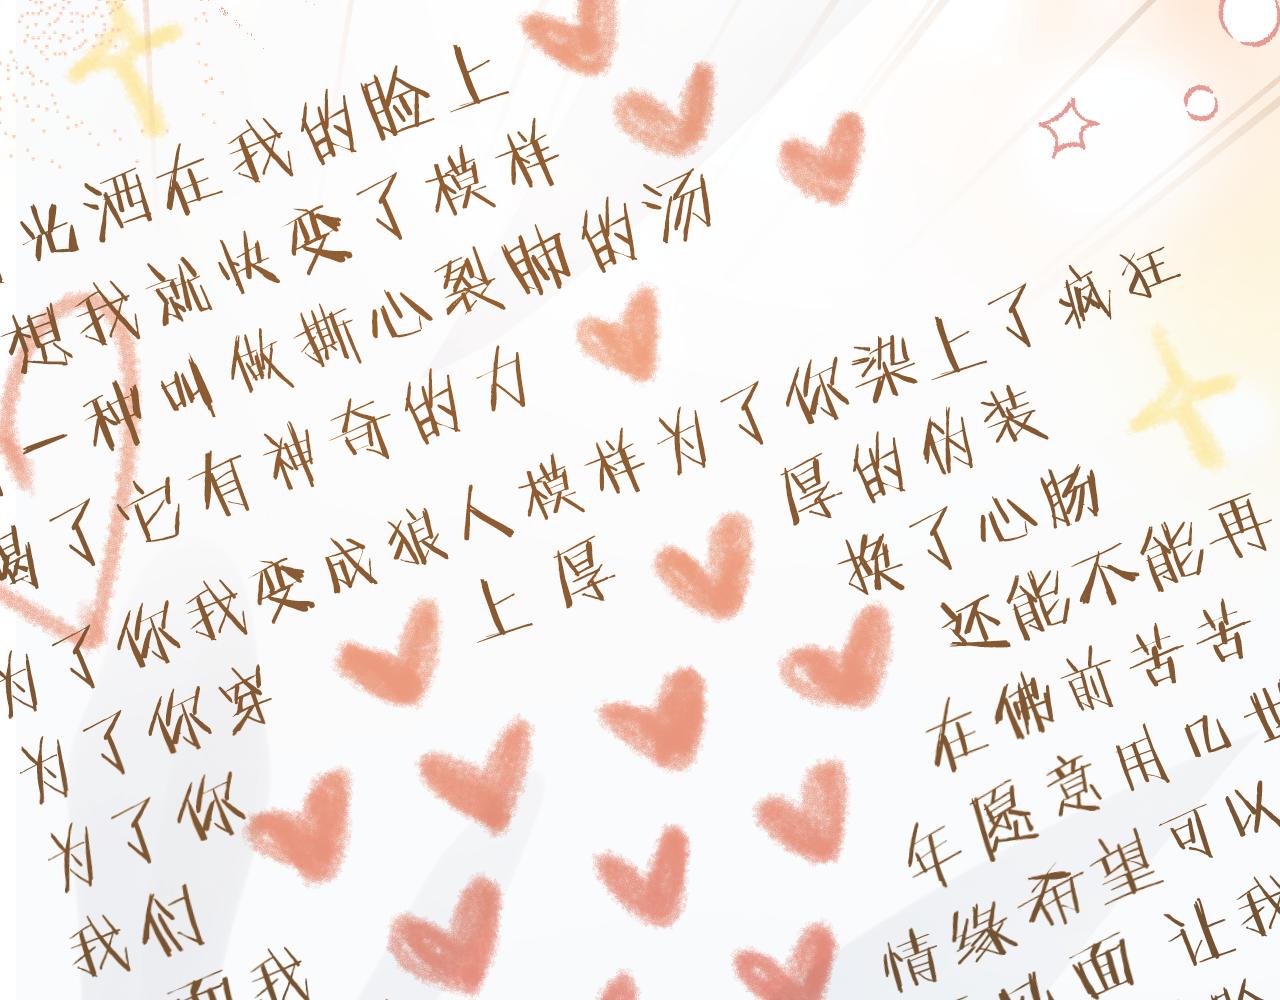 光洒在我的脸上
想我就快变了模样
一种叫做撕心裂肺的汤
喝了它有神奇的力
为了你我变成狼人模样为了你染上了疯狂
为了你穿上厚厚的伪装
为了你换了心肠
我们还能不能再
面我在佛前苦苦
年愿意用几世
情缘希望可以
让我